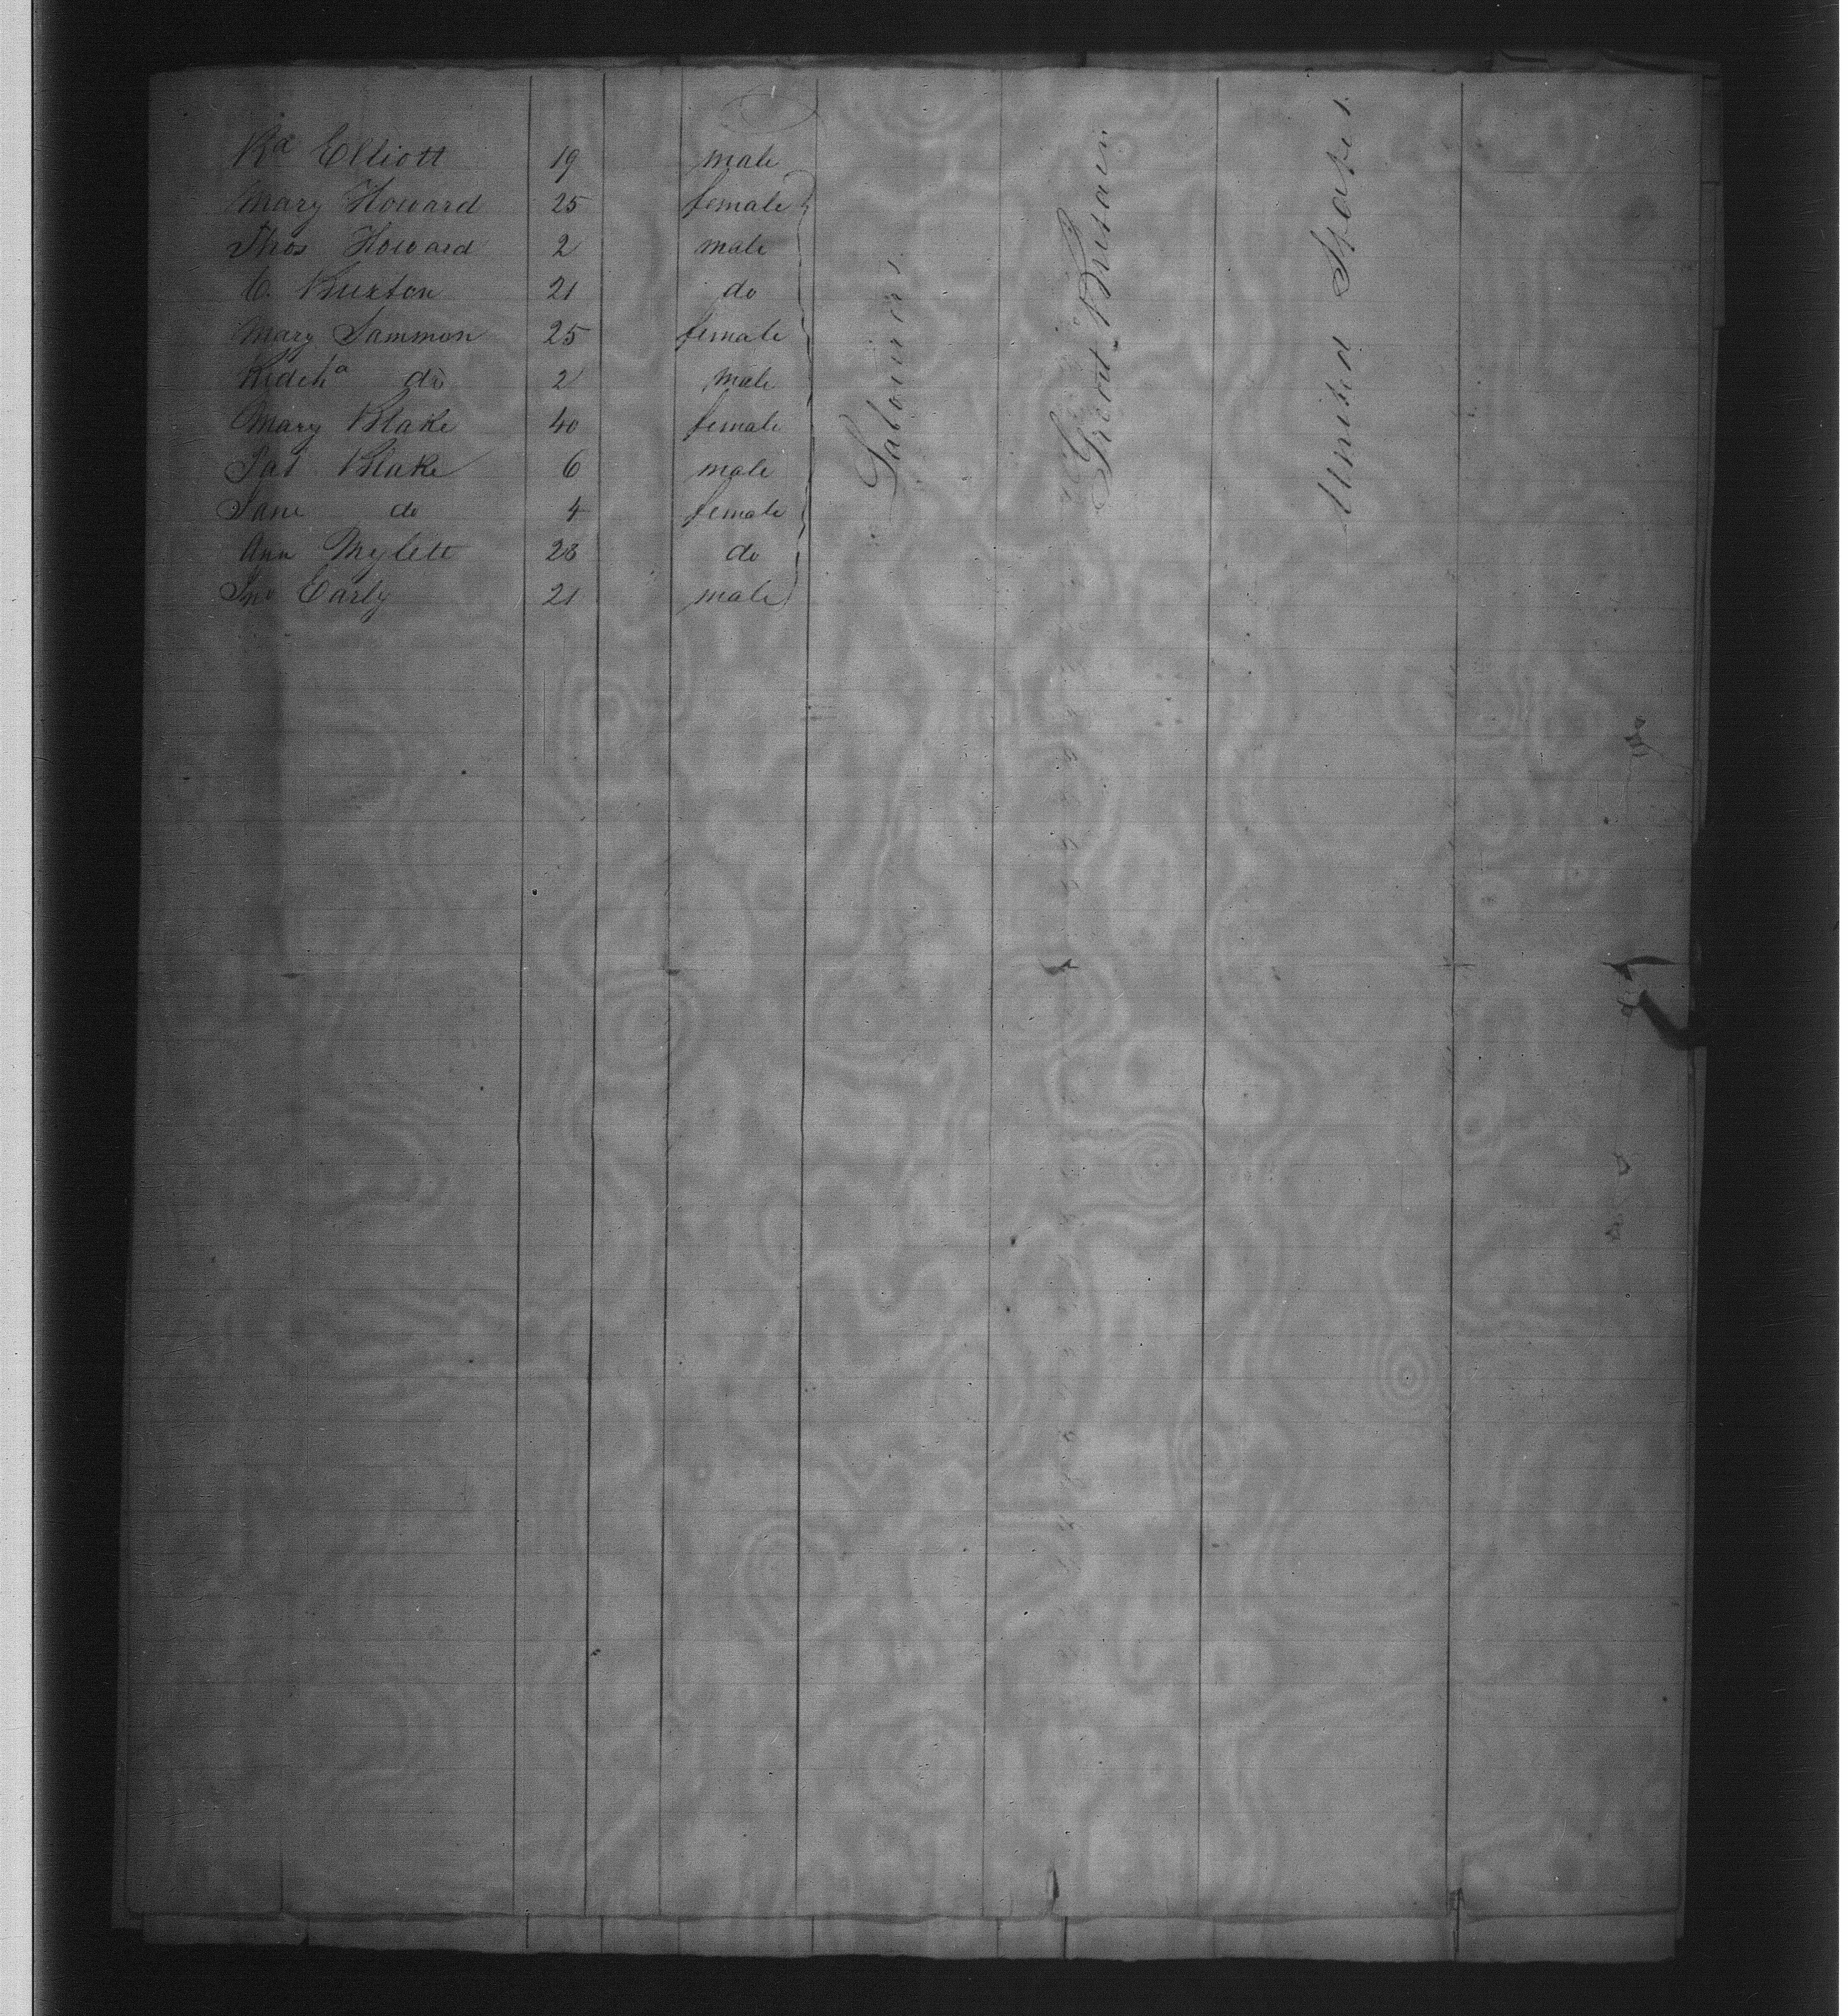 Rd Elliott 19 male
Mary Howard 25 female
Thos Howard 2 male
C. Burton 21 do
Mary Sammon 25 female
do 2 male
Mary Blake 40 female
Pat Blake 6 male
Jane do 4 female
Ann Mylett 28 do
Jno Early 21 male
Labourers
Great Britain
United States